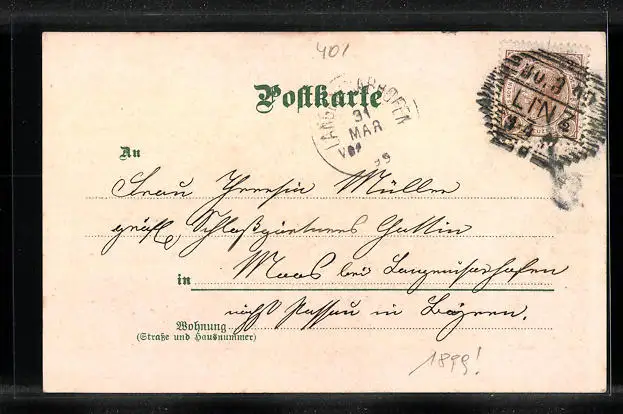 401
Postkarte
LANG ARHOFEN
31
MAR
99
LINZ
An
Frau Theresia Müller
gräfl. Schloßgärtners Gattin
in Moos bei Langenisarhofen
nächst Passau in Bayern.
Wohnung
(Straße und Hausnummer)
1899!